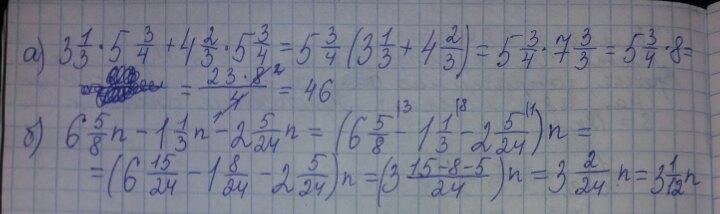 а) 3 1/3 · 5 3/4 + 4 2/3 · 5 3/4 = 5 3/4 (3 1/3 + 4 2/3) = 5 3/4 · 7 3/3 = 5 3/4 · 8 =
= 23 · 8 2 / 4 1 = 46
б) 6 5/8 n - 1 1/3 n - 2 5/24 n = (6 5/8 |3 - 1 1/3 |8 - 2 5/24 |1) n =
= (6 15/24 - 1 8/24 - 2 5/24) n = (3 15-8-5/24) n = 3 2/24 n = 3 1/12 n